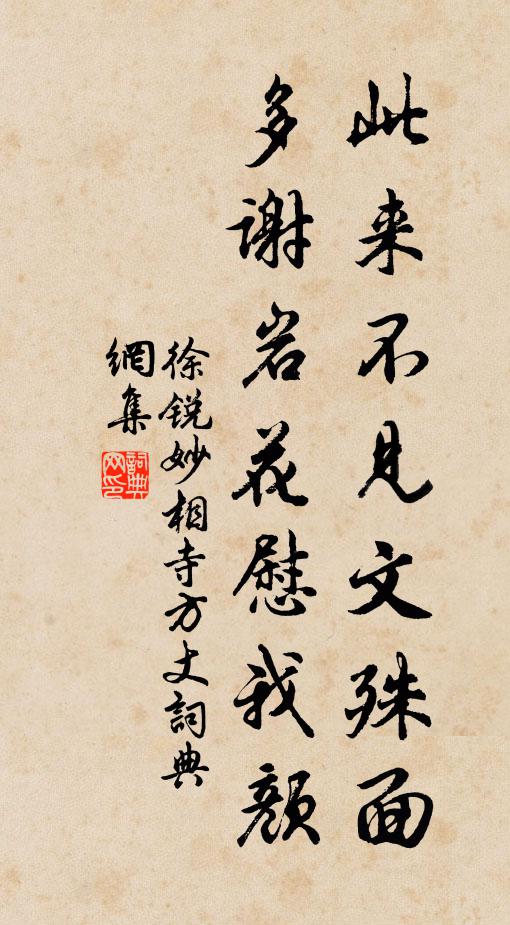 此来不见文殊面
多谢岩花慰我颜
徐锐妙相寺方丈詞典
網集
詞典网印